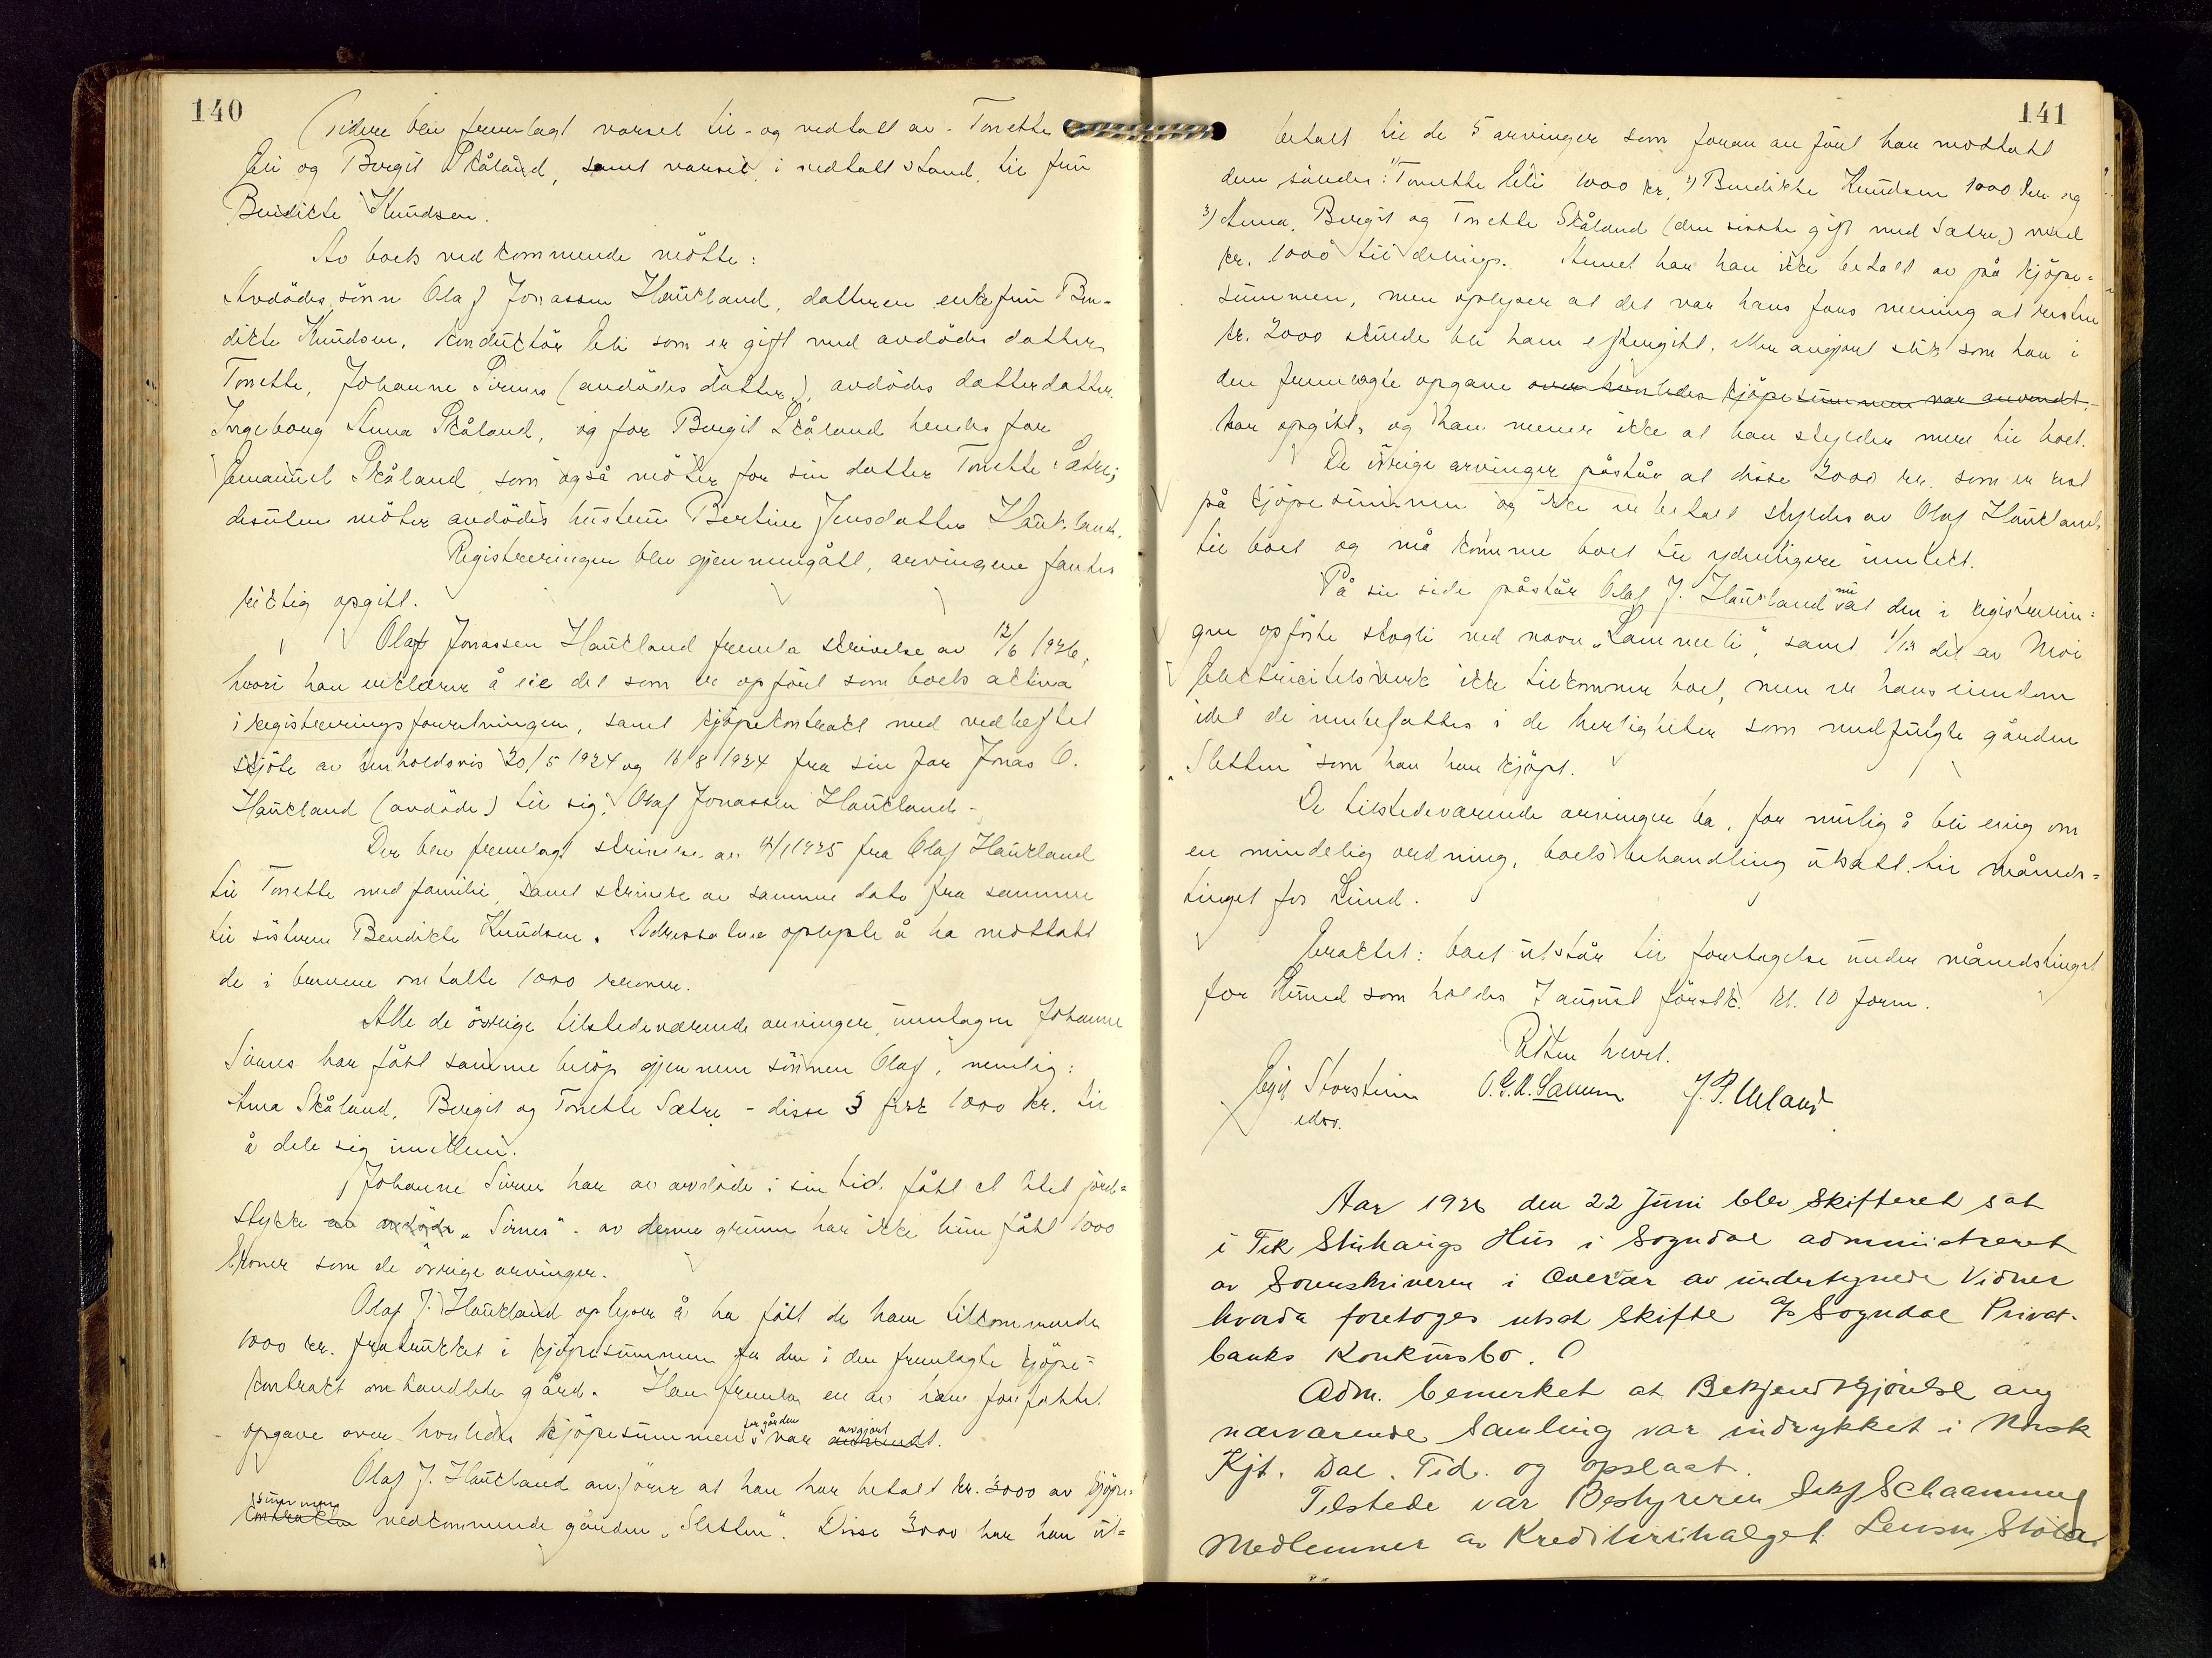 140
Videre blev fremlagt varsel til - og vedtatt av - Tonette
Eli og Borgit Skåland, samt varsel, i vedtatt stand, til fru
Bendikte Knudsen.
Av boets vedkommende møtte:
Avdødes sønn Olaf Jonassen Haukland, datteren enkefru Ben-
dikte Knudsen, konduktør Eli som er gift med avdødes datter
Tonette, Johanne Sirnes (avdødes datter), avdødes datterdatter
Ingeborg Anna Skåland, og for Borgit Skåland hendes far
Emanuel Skåland, som også møter for sin datter Tonette Sætre;
desuten møter avdødes hustru Bertine Jensdatter Haukland.
Registreringen blev gjennemgått, arvingene fantes
riktig opgitt.
Olaf Jonassen Haukland fremla skrivelse av 12/6 1926,
hvori han erklærer å eie det som er opført som boets aktiva
i registreringsforretningen, samt kjøpekontrakt med vedheftet
skjøte av henholdsvis 20/5 1924 og 18/8 1924 fra sin far Jonas O.
Haukland (avdøde) til sig, Olaf Jonassen Haukland.
Der blev fremlagt skrivelse av 12/1 1925 fra Olaf Haukland
til Tonette med familie, samt skrivelse av samme dato fra samme
til søsteren Bendikte Knudsen. Adressatene oplyste å ha mottatt
de i brevene omtalte 1000 kroner.
Alle de øvrige tilstedeværende arvinger, unntagen Johanne
Sirnes har fått samme beløp gjennem sønnen Olaf, nemlig:
Anna Skåland, Borgit og Tonette Sætre - disse 3 fikk 1000 kr. til
å dele sig imellem.
Johanne Sirnes har av avdøde i sin tid fått et litet jord-
stykke av avdøde „Sirnes" - av denne grunn har ikke hun fått 1000
kroner som de øvrige arvinger.
Olaf J. Haukland oplyser å ha fått de ham tilkommende
1000 kr. fratrukket i kjøpesummen for den i den fremlagte kjøpe-
kontrakt omhandlede gård. Han fremla en av ham forfattet
opgave over hvorledes kjøpesummen for gården var anvendt avgjort.
Olaf J. Haukland anfører at han har betalt kr. 3000 av kjøpe-
kontrakten summen vedkommende gården „Sletten". Disse 3000 har han ut-
141
betalt til de 5 arvinger som foran anført har mottatt
dem således: 1) Tonette Eli 1000 kr, 2) Bendikte Knudsen 1000 kr. og
3) Anna, Borgit og Tonette Skåland (den sidste gift med Sætre) med
kr. 1000 til delings. Annet har han ikke betalt av på kjøpe-
summen, men oplyser at det var hans fars mening at resten
kr. 2000 skulde bli ham eftergitt, eller avgjort slik som han i
den fremlagte opgave over hvorledes kjøpesummen var anvendt,
har opgitt, og han mener ikke at han skylder mere til boet.
De øvrige arvinger påstår at disse 2000 kr. som er rest
på kjøpesummen og ikke er betalt skyldes av Olaf Haukland
til boet og må komme boet til yderligere inntekt.
På sin side påstår Olaf J. Haukland nu at den i registrerin-
gen opførte skogli ved navn „Lammeli", samt 1/12 del av Moi
Elektricitetsverk ikke tilkommer boet, men er hans eiendom
idet de innbefattes i de herligheter som medfulgte gården
„Sletten" som han har kjøpt.
De tilstedeværende arvinger ba, for mulig å bli enig om
en mindelig ordning, boets behandling utsatt til måneds-
tinget for Lund.
Eraktet: boet utstår til foretagelse under månedstinget
for Lund som holdes 7 august førstk. kl. 10 form.
Retten hevet.
Egif Storstein O. G. A. Saurum J. P. Ueland
edsv.
Aar 1926 den 22 Juni blev Skifteret sat
i Tek Stuhaugs Hus i Sogndal administreret
av Sorenskriveren i Overvær av undertegnede Vidner
hvorda foretoges utsat Skifte A/S Sogndal Privat-
banks Konkursbo.
Adm. bemerket at Bekjendtgjørelse ang
nærværende Samling var indrykket i Norsk
Kjt. Dal. Tid. og opslaat.
Tilstede var Bestyreren Sekf Schaanning
Medlemmer av Kreditorutvalget Lensm Stölen